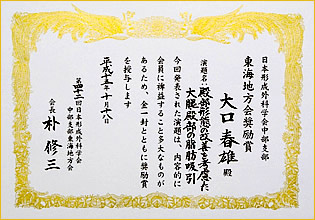 日本形成外科学会中部支部
東海地方会奨励賞
大口春雄殿
演題名:殿部形態の改善を考慮した
大腿殿部の脂肪吸引
今回発表された演題は、内容的に
会員に裨益すること多大なものが
あるため、金一封とともに奨励賞
を授与します
平成十五年十月十八日
第四十二回日本形成外科学会
中部支部東海地方会
会長 朴修三